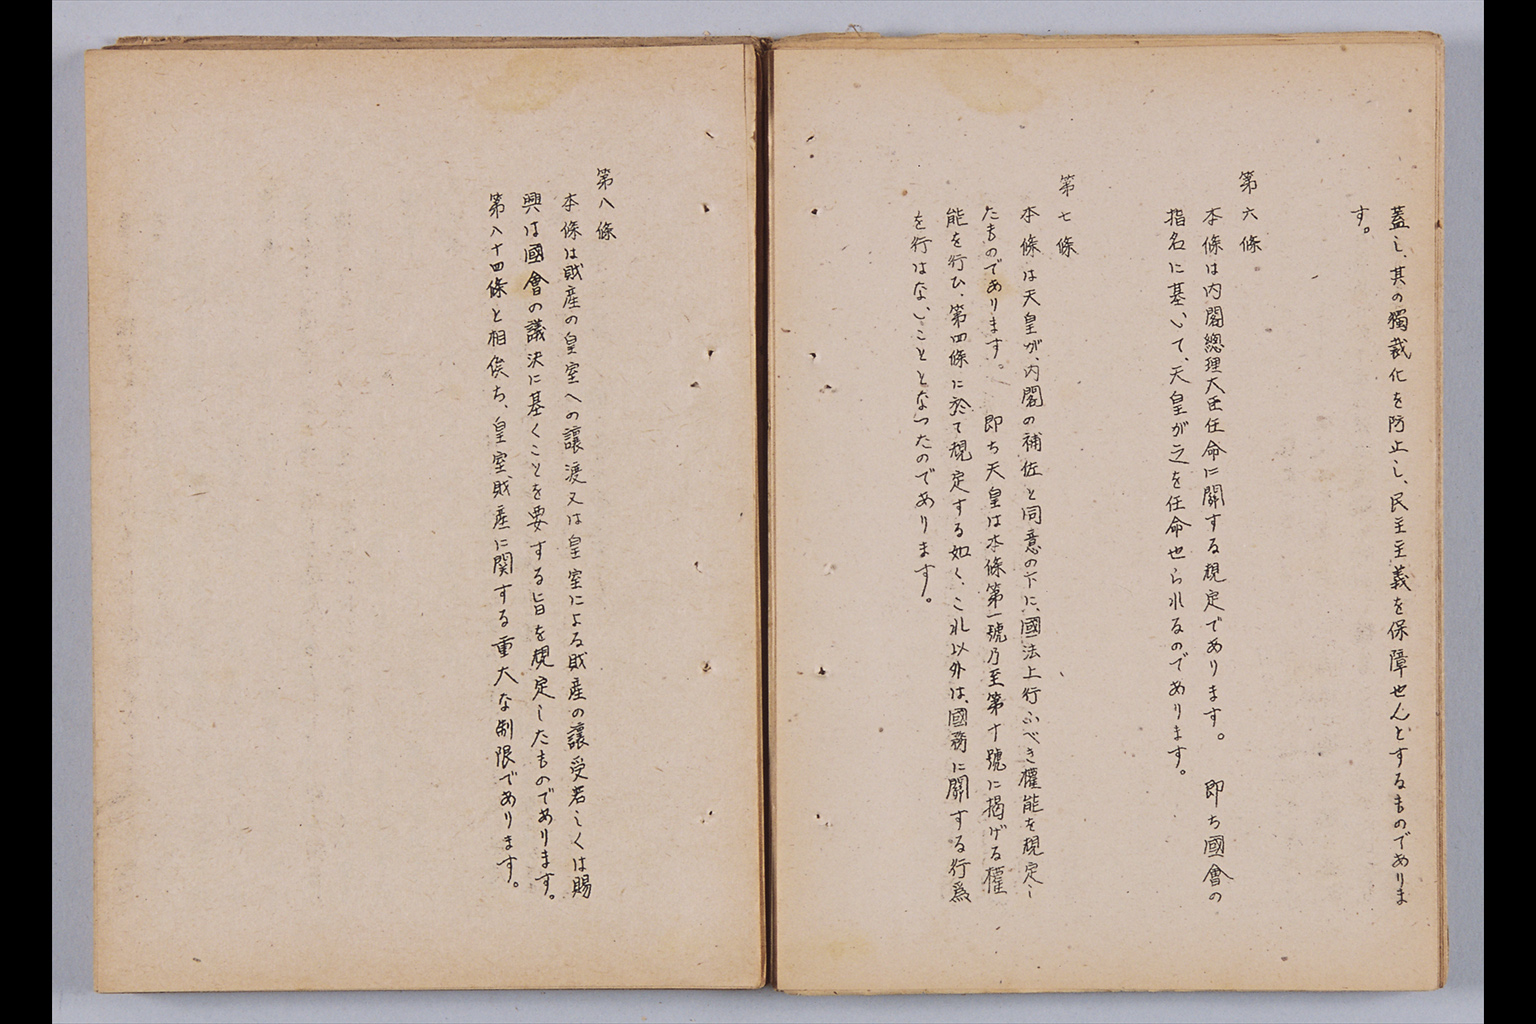 蓋し、其の獨裁化を防止し、民主主義を保障せんとするものでありま
す。
第六條
本條は内閣總理大臣任命に關する規定であります。即ち國會の
指名に基いて、天皇が之を任命せられるのであります。
第七條
本條は天皇が、内閣の補佐と同意の下に、國法上行ふべき權能を規定し
たものであります。即ち天皇は本條第一號乃至第十號に揭げる權
能を行ひ、第四條に於て規定する如く、これ以外は、國務に關する行爲
を行はないこととなつたのであります。
第八條
本條は財産の皇室への讓渡又は皇室による財産の讓受若しくは賜
與は國會の議決に基くことを要する旨を規定したものであります。
第八十四條と相俟ち、皇室財産に関する重大な制限であります。